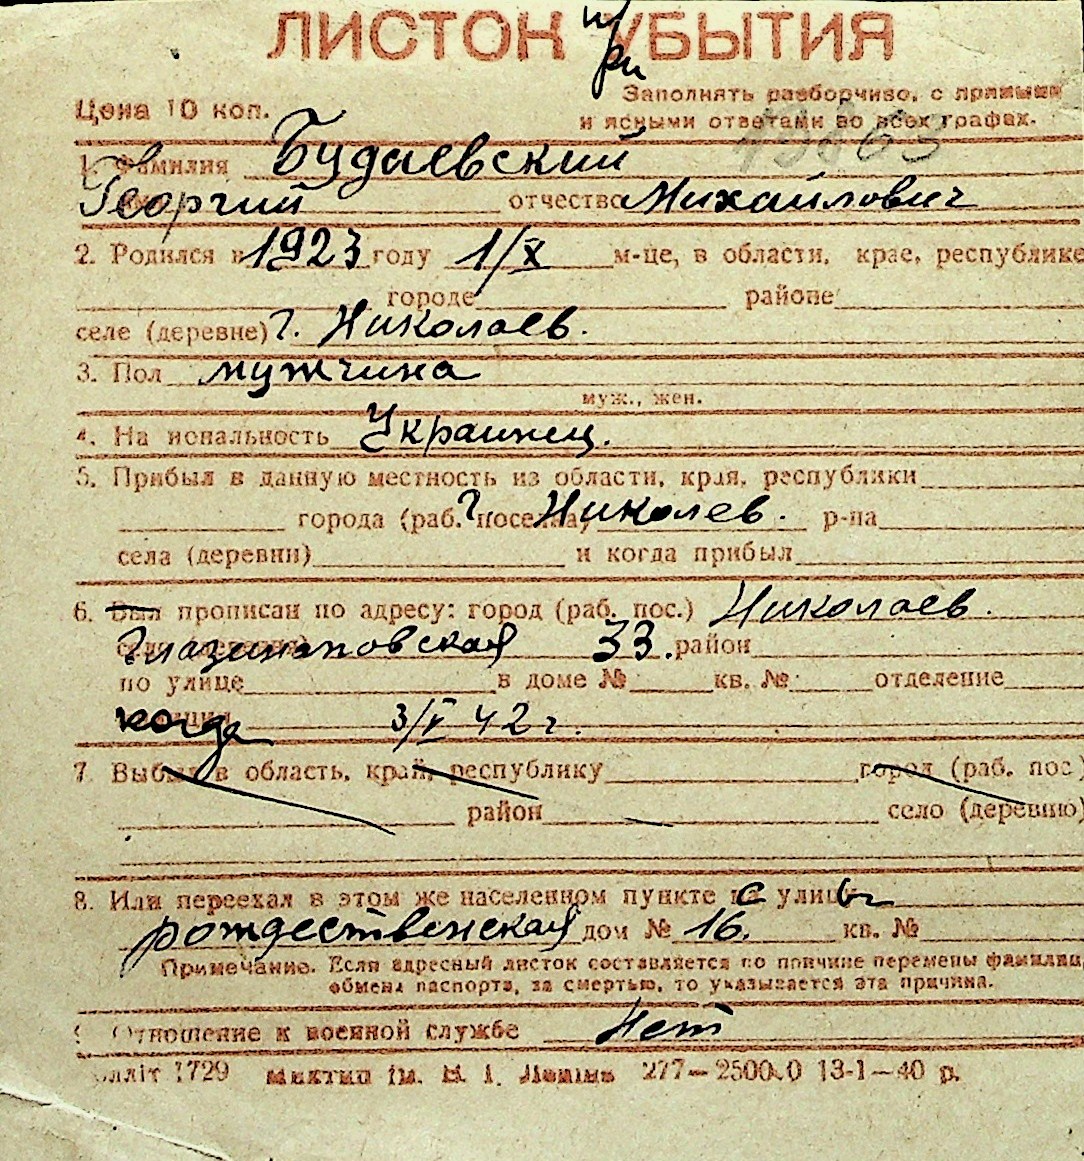 ЛИСТОК УБЫТИЯ
при
Цена 10 коп.
Заполнять разборчиво, с прямыми
и ясными ответами во всех графах.
1. Фамилия Будаевский
Георгий отчество Михайлович
2. Родился в 1923 году 1/X м-це, в области, крае, республике
городе районе
селе (деревне) г. Николаев.
3. Пол мужчина
муж., жен.
4. На иональность Украинец.
5. Прибыл в данную местность из области, края, республики
города (раб. поселка) г. Николев. р-на
села (деревни) и когда прибыл
6. Был прописан по адресу: город (раб. пос.) Николаев.
33. район
по улице в доме № кв. № отделение
когда 3/V 42 г.
7 Выбыл в область, край, республику город (раб. пос.)
район село (деревню)
8. Или переехал в этом же населенном пункте с улицы
рождественская дом № 16. кв. №
Примечание. Если адресный листок составляется по причине перемены фамилии,
обмена паспорта, за смертью, то указывается эта причина.
9 Отношение к военной службе Нет
олліт 1729 Миктип ім. В. І. Леніна 277—25000 13-1—40 р.